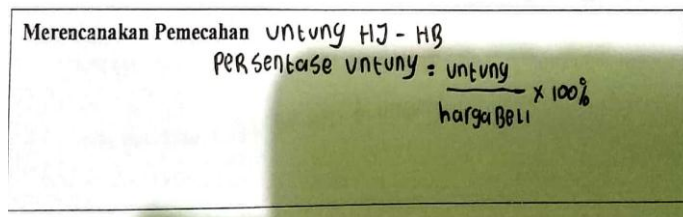 Merencanakan Pemecahan untung HJ - HB
Persentase untung = untung
harga Beli × 100%